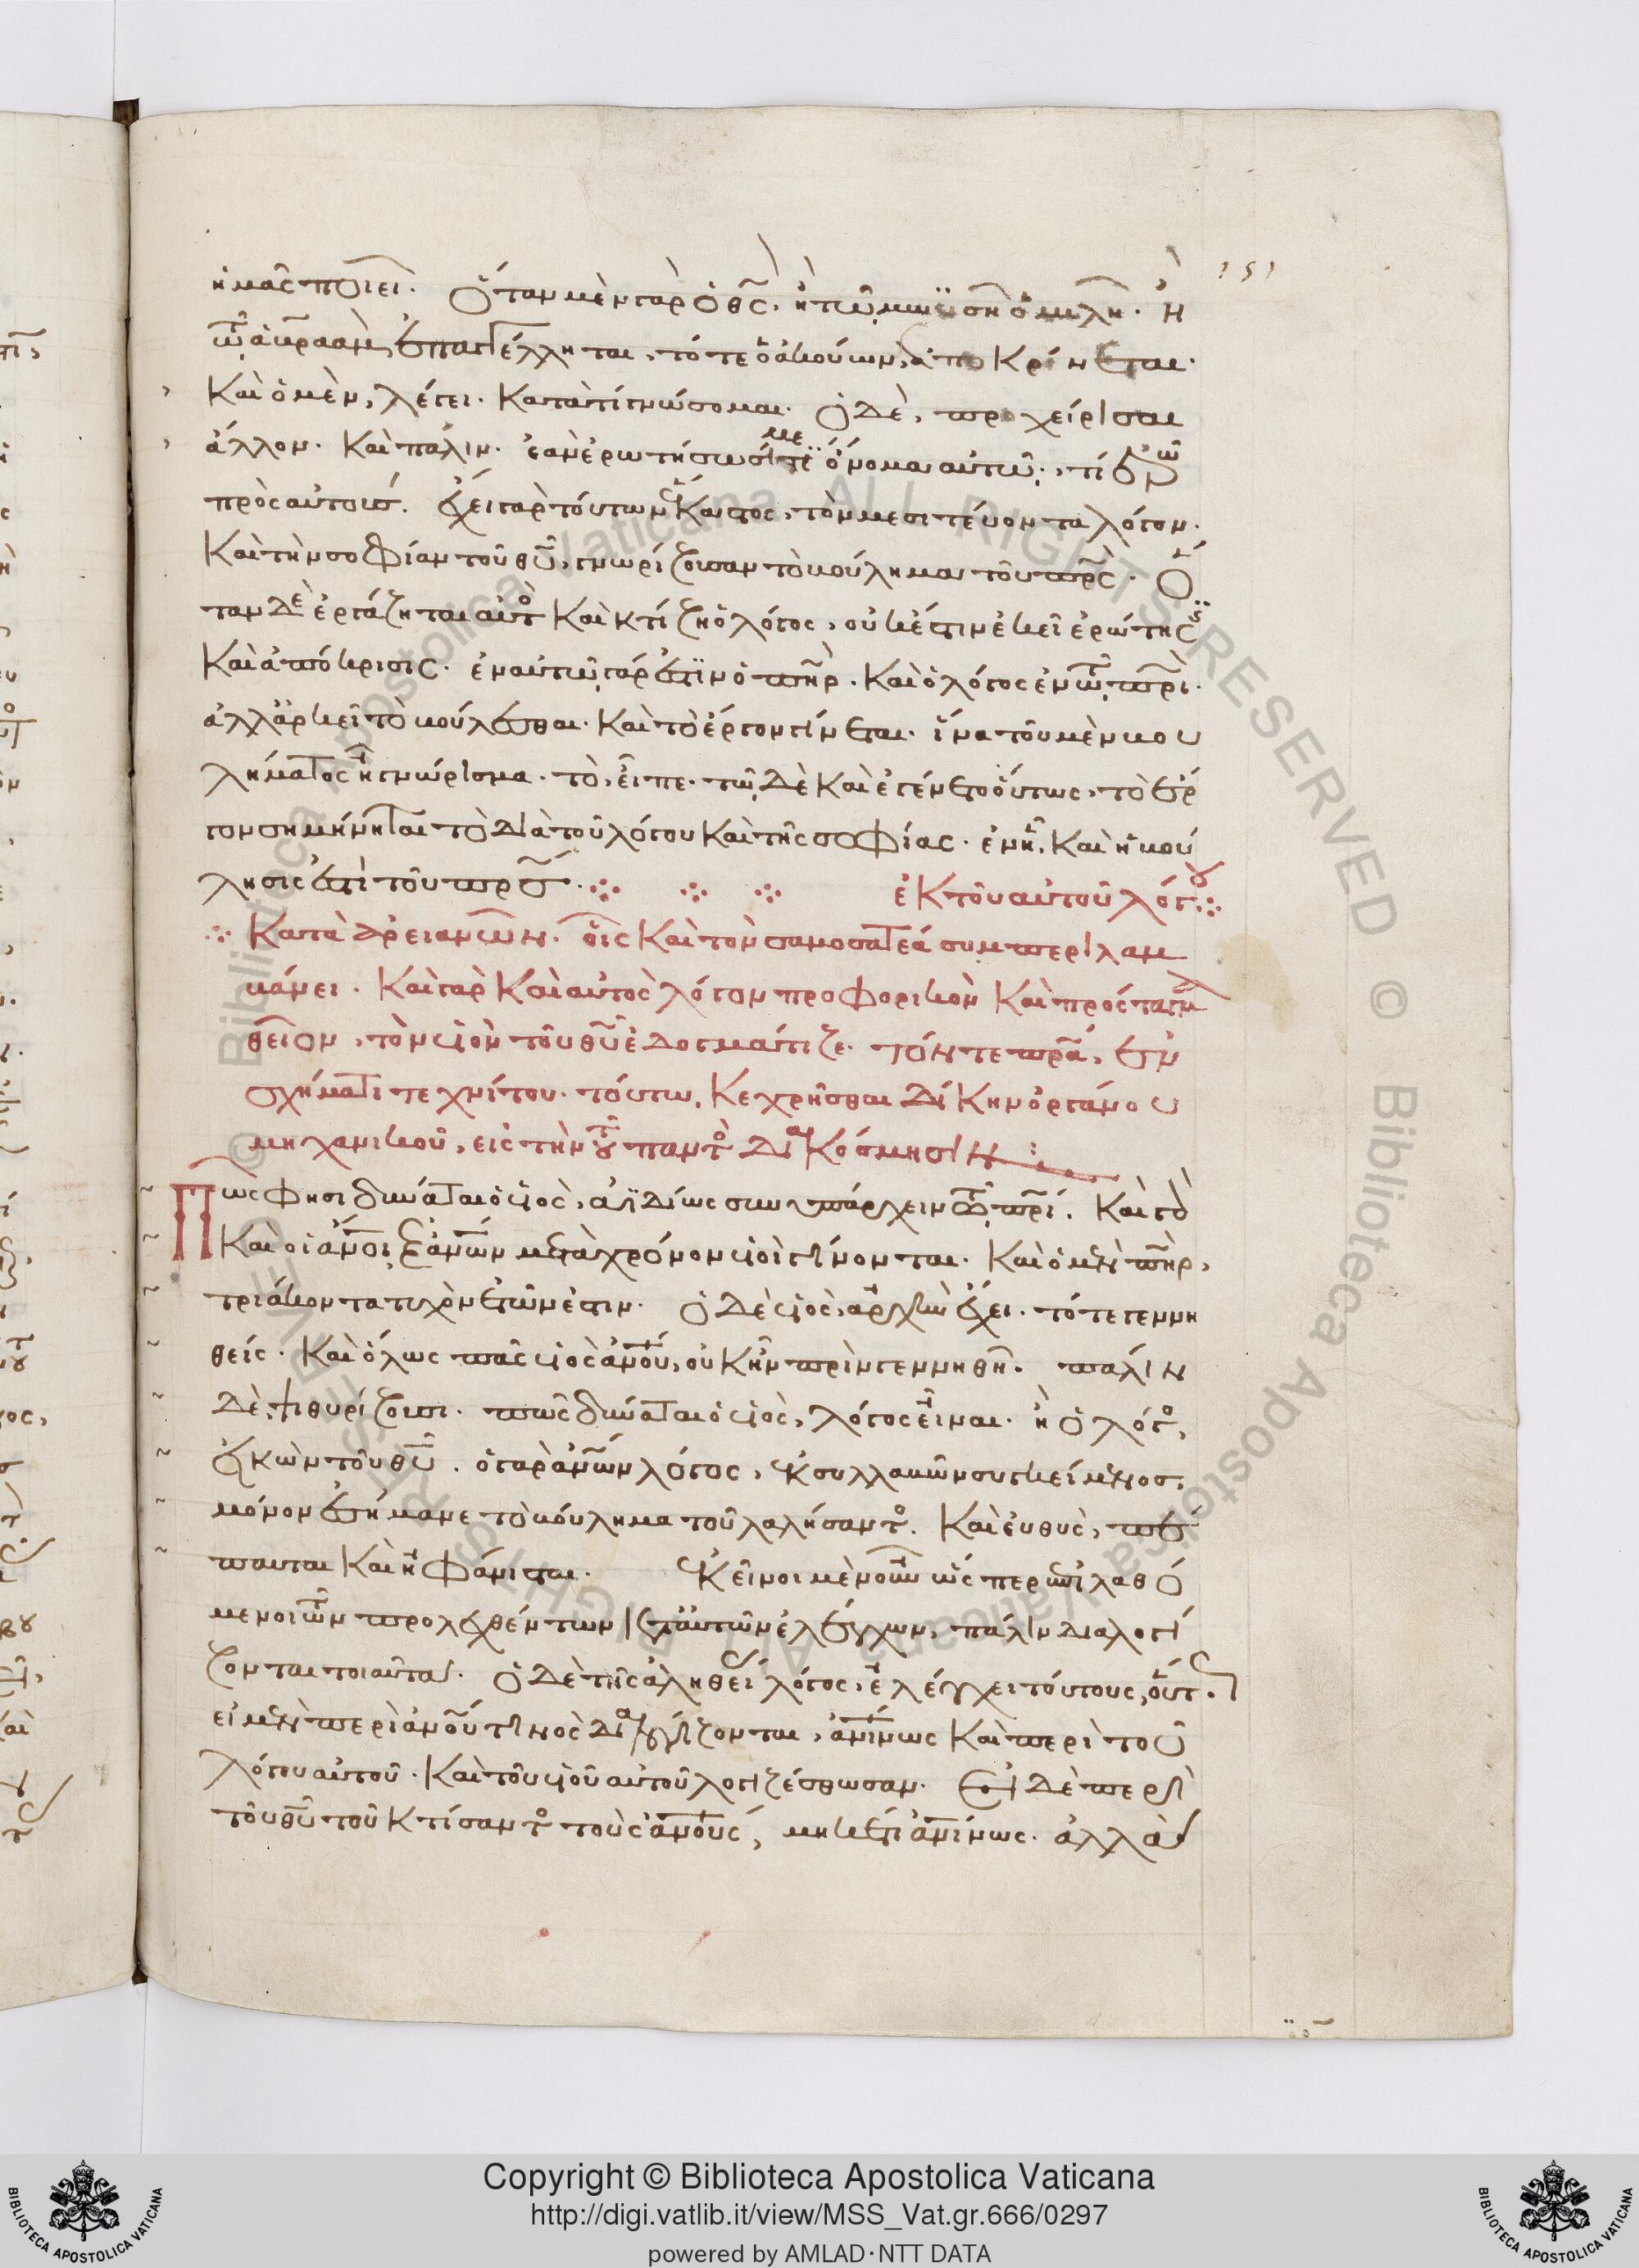 151
ἡμᾶς ποιεῖ. Ὅταν μὲν γὰρ ὁ θς̅, ἢ τῷ μωϋσῇ ὁμιλῇ. ἢ
τῷ ἀβραὰμ ἐπαγγέλληται, τότε ὁ ἀκούων, ἀποκρίνεται.
Καὶ ὁ μὲν, λέγει. Κατὰ τί γνώσομαι. Ὁ δὲ, προχείρισαι
ἄλλον. Καὶ πάλιν. ἐὰν ἐρωτήσωσί με τί ὄνομα αὐτῷ, τί ἐρῶ
πρὸς αὐτούς. ἔχει γὰρ τούτων ἕκαστος, τὸν μεσιτεύοντα λόγον.
Καὶ τὴν σοφίαν τοῦ θυ̅, γνωρίζουσαν τὸ βούλημα τοῦ πρς̅. Ὅ
ταν δὲ ἐργάζηται αὐτὸς Καὶ κτίζῃ ὁ λόγος, οὐκ ἔστιν ἐκεῖ ἐρώτησις
Καὶ ἀπόκρισις. ἐν αὐτῷ γάρ ἐστιν ὁ πηρ̅. Καὶ ὁ λόγος ἐν τῷ πρι̅.
ἀλλ' ἀρκεῖ τὸ βούλεσθαι. Καὶ τὸ ἔργον γίνεται. ἵνα τοῦ μὲν βου
λήματος ᾖ γνώρισμα. τὸ, εἶπε. τῷ δὲ Καὶ ἐγένετο οὕτως, τὸ ἔρ
γον σημήνηται τὸ διὰ τοῦ λόγου Καὶ τῆς σοφίας. ἐν ᾗ, Καὶ ἡ βού
λησις ἐστὶ τοῦ πρς̅. ἐκ τοῦ αὐτοῦ λόγου
Κατὰ ἀρειανῶν. οἷς Καὶ τὸν σαμοσατέα συμπεριλαμ
βάνει. Καὶ γὰρ Καὶ αὐτὸς λόγον προφορικὸν Καὶ πρόσταγμα
θεῖον, τὸν υἱὸν τοῦ θυ̅ ἐδογμάτιζε. τόν τε πρα̅, ἐν
σχήματι τεχνίτου. τούτῳ, Κεχρῆσθαι δίκην ὀργάνου
μηχανικοῦ, εἰς τὴν τοῦ παντὸς διακόσμησιν
Πῶς φησι δύναται ὁ υἱὸς, ἀϊδίως συνυπάρχειν τῷ πρι̅. Καὶ γὰρ
Καὶ οἱ ἀνοι̅, ἐξ ἀνων̅ μετὰ χρόνον υἱοὶ γίνονται. Καὶ ὁ μὲν πηρ̅,
τριάκοντα τυχὸν ἐτῶν ἐστιν. Ὁ δὲ υἱὸς, ἀρχὴν ἔχει. τότε γεννη
θείς. Καὶ ὅλως πᾶς υἱὸς ἀνου̅, οὐκ ἦν πρὶν γεννηθῇ. πάλιν
δὲ, ψιθυρίζουσι. πῶς δύναται ὁ υἱὸς, λόγος εἶναι. ἢ ὁ λόγος,
εἰκὼν τοῦ θυ̅. ὁ γὰρ ἀνων̅ λόγος, ἐκ συλλαβῶν συγκείμενος.
μόνον ἐσήμανε τὸ βούλημα τοῦ λαλήσαντος. Καὶ εὐθὺς, πέ
παυται Καὶ ἠφάνισται. Ἐκεῖνοι μὲν οὖν ὥσπερ ἐπιλαθό
μενοι τῶν προλεχθέντων κατ' αὐτῶν ἐλέγχων, πάλιν διαλογί
ζονται τοιαῦτα. Ὁ δὲ τῆς ἀληθείας λόγος, ἐλέγχει τούτους, οὕτως.
εἰ μὲν περὶ ἀνου̅ τινὸς διαλογίζονται, ἀνινως̅ Καὶ περὶ τοῦ
λόγου αὐτοῦ. Καὶ τοῦ υἱοῦ αὐτοῦ λογιζέσθωσαν. εἰ δὲ περὶ
τοῦ θυ̅ τοῦ Κτίσαντος τοὺς ἀνους̅, μηκέτι ἀνινως̅. ἀλλὰ
Copyright © Biblioteca Apostolica Vaticana
http://digi.vatlib.it/view/MSS_Vat.gr.666/0297
powered by AMLAD·NTT DATA